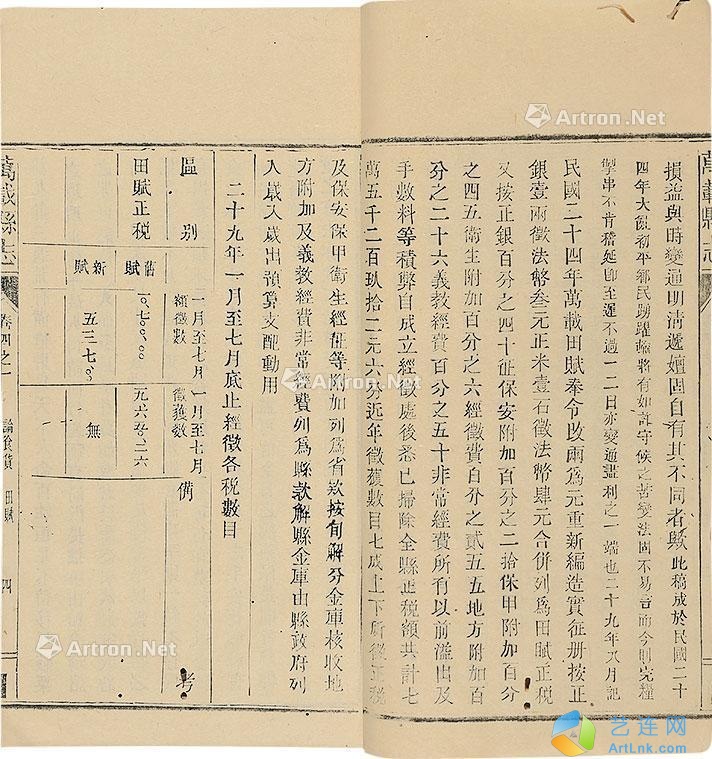 萬載縣志
損益與時變通明清遞嬗固自有其不同者歟此稿成於民國二十
四年大飢初平鄉民踴躍輸將有如許守候之苦變法固不易言而今則完糧
掣串不肯稽延即至遲不過一二日亦變通盡利之一端也二十九年八月記
民國二十四年萬載田賦奉令改兩爲元重新編造實征册按正
銀壹兩徵法幣叁元正米壹石徵法幣肆元合併列爲田賦正税
又按正銀百分之四十征保安附加百分之二拾保甲附加百分
之四五衛生附加百分之六經徵費百分之貳五五地方附加百
分之二十六義教經費百分之五十非常經費所有以前溢出及
手數料等積弊自成立經徵處後悉已掃除全縣正税額共計七
萬五千二百玖拾二元六分近年徵獲數目七成上下所徵正税
及保安保甲衛生經征等附加列爲省欵按旬解分金庫核收地
方附加及義教經費非常經費列爲縣欵解縣金庫由縣政府列
入歲入歲出預算支配動用
二十九年一月至七月底止經徵各税數目
區别
一月至七月額徵數
一月至七月徵獲數
備考
田賦正税
舊賦
一〇.七〇〇.〇〇
一九六五〇二六
新賦
五三七〇
無
萬載縣志
卷四之一
論食貨
田賦
四
Artron.Net
Artron.Net
Artron.Net
Artron.Net
Artron.Net
艺连网
ArtLnk.Com